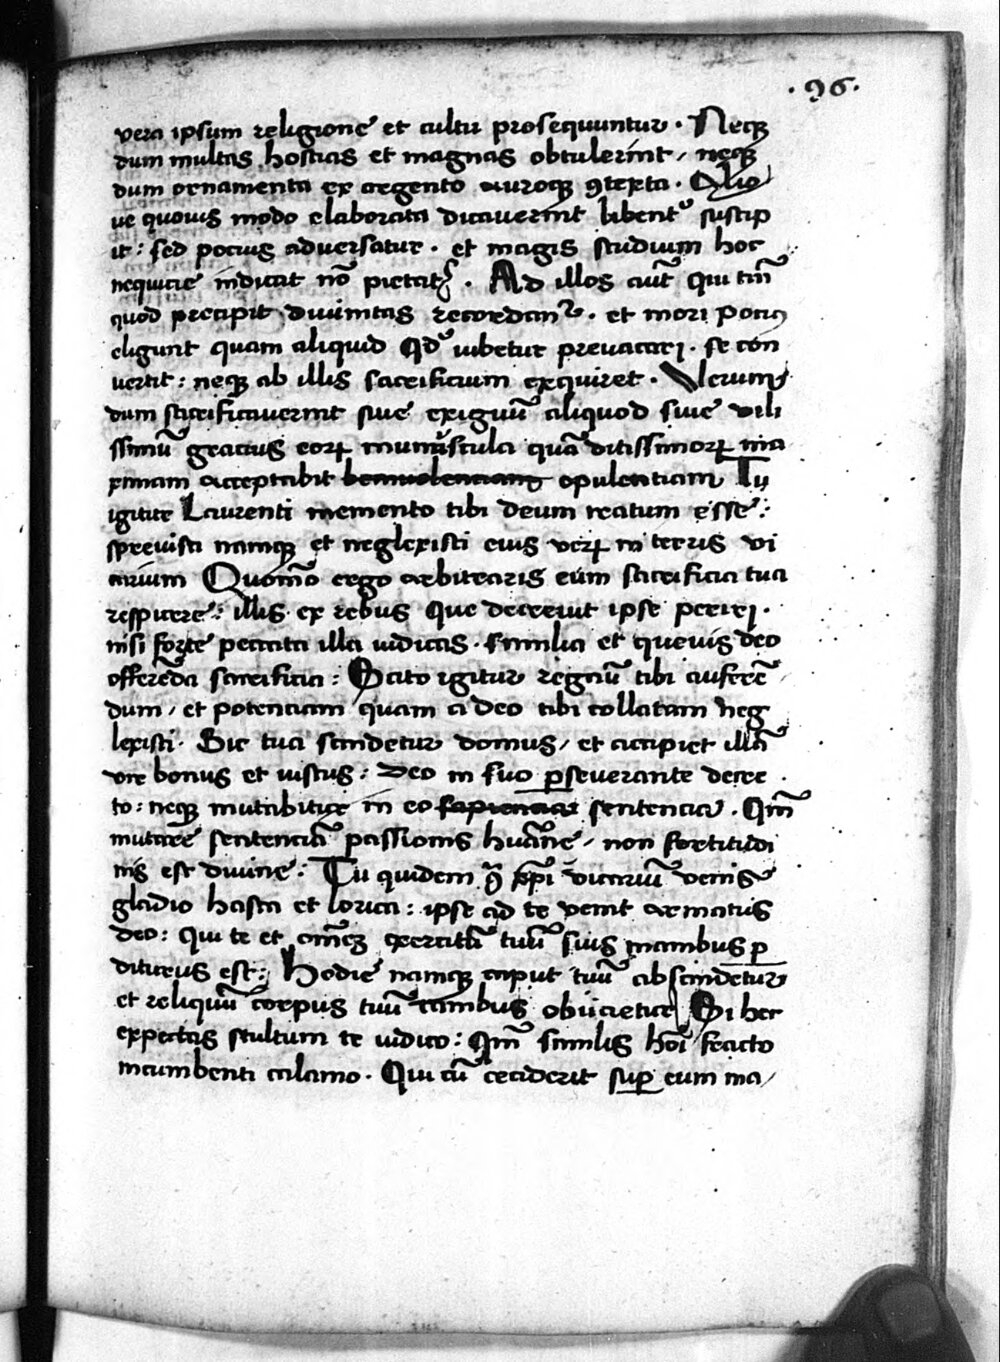 ·96·
vera ipsum religione et cultu prosequuntur · Neqꝫ
dum multas hostias et magnas obtulerint / neqꝫ
dum ornamenta ex argento auroqꝫ ꝯtexta · Alio
ue quouis modo elaborata dicauerint libentꝰ suscip
it : sed pocius adversatur · et magis studium hoc
nequicie indicat nō pietatꝭ · Ad illos aūt qui cū
quod precipit diuinitas recordant᷑ · et mori pociꝰ
eligunt quam aliquid qđ iubetur preuacari · se con
uertit : neqꝫ ab illis sacrificium exquiret · Verum
dum sacrificauerint siue exiguū aliquod siue vili
ssimū gracius eoꝝ munuscula quā ditissimoꝝ ma
ximam acceptabit beniuolenciam opulentiam Tu
igitur Laurenti memento tibi deum iratum esse :
sprevisti namqꝫ et neglexisti eius veꝝ in terris vi
carium Quomō ergo arbitraris eum sacrificia tua
respicere : illis ex rebus que decrevit ipse perirj ·
nisi forte peccata illa iudicas · similia et quevis deo
offerēda sacrificia : Scito igitur regnū tibi auferē
dum / et potenciam quam a deo tibi collatam neg
lexisti · Sic tua scindetur domus / et accipiet illā
vir bonus et iustus : Deo in suo ꝑseverante decre
to : neqꝫ mutabitur in eo sapiencia sentencia · Qm̄
mutare sentenciā passionis humāne / non fortitudi
nis est divine : Tu quidem ꝯͣ xp̄i vicariū venis
gladio hasta et lorica : ipse ad te venit armatus
deo : qui te et om̄eꝫ exercitū tuū suis manibus ꝑ
diturus est : Hodie namqꝫ caput tuū abscindetur
et reliquū corpus tuū canibus obiicietur Si hec
expectas stultum te iudico : Qm̄ similis hōi fracto
incumbenti calamo · Qui cū ceciderit suꝑ eum ma/